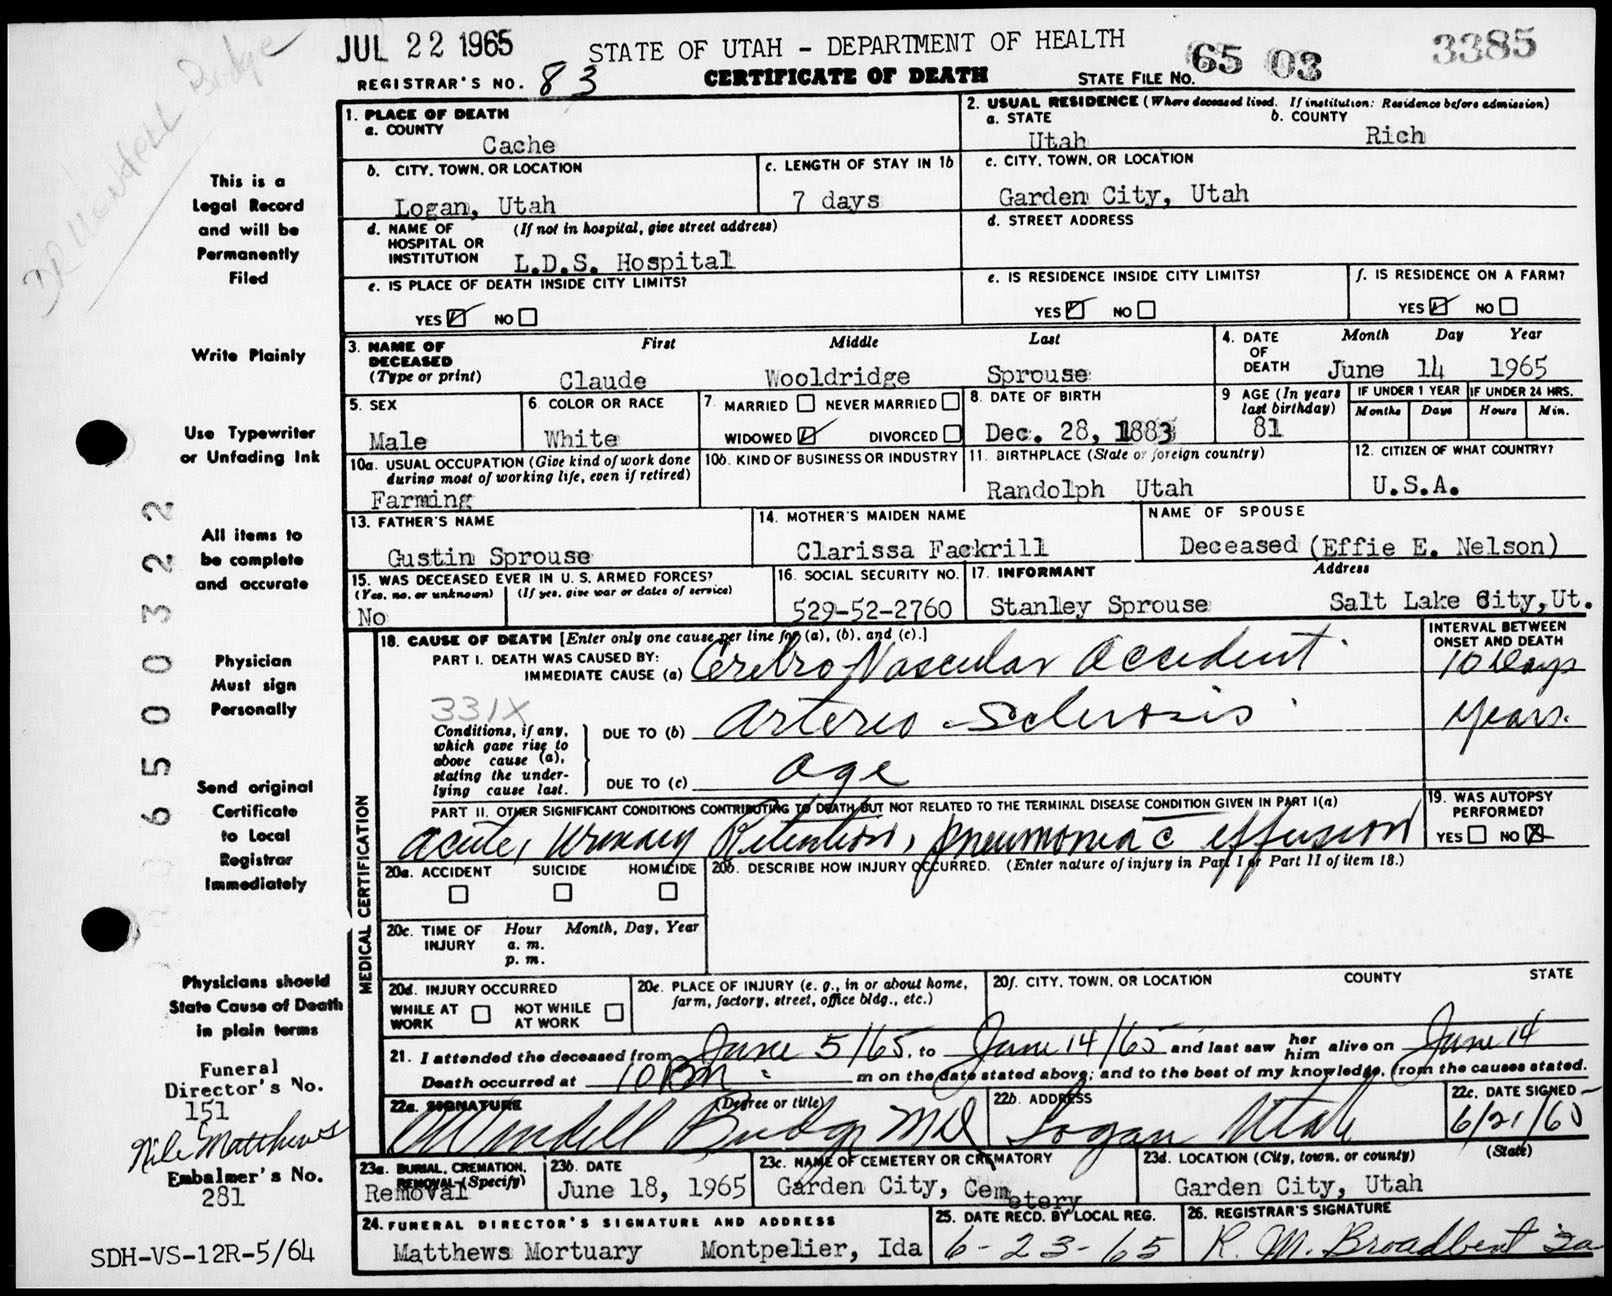 JUL 22 1965
STATE OF UTAH - DEPARTMENT OF HEALTH
65 03
3385
REGISTRAR'S NO. 83
CERTIFICATE OF DEATH
STATE FILE NO.
DR Wendell Budge
This is a
Legal Record
and will be
Permanently
Filed
Write Plainly
Use Typewriter
or Unfading Ink
All items to
be complete
and accurate
Physician
Must sign
Personally
Send original
Certificate
to Local
Registrar
Immediately
Physicians should
State Cause of Death
in plain terms
Funeral
Director's No.
151
Nile Matthews
Embalmer's No.
281
SDH-VS-12R-5/64
6500322
1. PLACE OF DEATH
a. COUNTY
Cache
2. USUAL RESIDENCE (Where deceased lived. If institution: Residence before admission)
a. STATE
Utah
b. COUNTY
Rich
b. CITY, TOWN, OR LOCATION
Logan, Utah
c. LENGTH OF STAY IN 1b
7 days
c. CITY, TOWN, OR LOCATION
Garden City, Utah
d. NAME OF (If not in hospital, give street address)
HOSPITAL OR
INSTITUTION
L.D.S. Hospital
d. STREET ADDRESS
e. IS PLACE OF DEATH INSIDE CITY LIMITS?
YES NO
e. IS RESIDENCE INSIDE CITY LIMITS?
YES NO
f. IS RESIDENCE ON A FARM?
YES NO
3. NAME OF
DECEASED
(Type or print)
First Middle Last
Claude Wooldridge Sprouse
4. DATE
OF
DEATH
Month Day Year
June 14 1965
5. SEX
Male
6. COLOR OR RACE
White
7. MARRIED NEVER MARRIED
WIDOWED DIVORCED
8. DATE OF BIRTH
Dec. 28, 1883
9 AGE (In years
last birthday)
81
IF UNDER 1 YEAR
Months Days
IF UNDER 24 HRS.
Hours Min.
10a. USUAL OCCUPATION (Give kind of work done
during most of working life, even if retired)
Farming
10b. KIND OF BUSINESS OR INDUSTRY
11. BIRTHPLACE (State or foreign country)
Randolph Utah
12. CITIZEN OF WHAT COUNTRY?
U.S.A.
13. FATHER'S NAME
Gustin Sprouse
14. MOTHER'S MAIDEN NAME
Clarissa Fackrill
NAME OF SPOUSE
Deceased (Effie E. Nelson)
15. WAS DECEASED EVER IN U.S. ARMED FORCES?
(Yes, no, or unknown) (If yes, give war or dates of service)
No
16. SOCIAL SECURITY NO.
529-52-2760
17. INFORMANT Address
Stanley Sprouse Salt Lake City, Ut.
MEDICAL CERTIFICATION
18. CAUSE OF DEATH [Enter only one cause per line for (a), (b), and (c).]
PART I. DEATH WAS CAUSED BY:
IMMEDIATE CAUSE (a) Cerebro-Vascular Accident
INTERVAL BETWEEN
ONSET AND DEATH
10 Days
331X
Conditions, if any,
which gave rise to
above cause (a),
stating the under-
lying cause last.
DUE TO (b) Arterio-Sclerosis
years.
DUE TO (c) age
PART II. OTHER SIGNIFICANT CONDITIONS CONTRIBUTING TO DEATH BUT NOT RELATED TO THE TERMINAL DISEASE CONDITION GIVEN IN PART I(a)
acute, Urinary Retention, pneumonia c effusion
19. WAS AUTOPSY
PERFORMED?
YES NO
20a. ACCIDENT SUICIDE HOMICIDE
20b. DESCRIBE HOW INJURY OCCURRED. (Enter nature of injury in Part I or Part II of item 18.)
20c. TIME OF Hour Month, Day, Year
INJURY a. m.
p. m.
20d. INJURY OCCURRED
WHILE AT WORK NOT WHILE AT WORK
20e. PLACE OF INJURY (e. g., in or about home,
farm, factory, street, office bldg., etc.)
20f. CITY, TOWN, OR LOCATION COUNTY STATE
21. I attended the deceased from June 5/65, to June 14/65 and last saw her him alive on June 14
Death occurred at 10 PM m on the date stated above; and to the best of my knowledge, from the causes stated.
22a. SIGNATURE (Degree or title)
Wendell Budge MD
22b. ADDRESS
Logan Utah
22c. DATE SIGNED
6/21/65
23a. BURIAL, CREMATION,
REMOVAL (Specify)
Removal
23b. DATE
June 18, 1965
23c. NAME OF CEMETERY OR CREMATORY
Garden City, Cemetery
23d. LOCATION (City, town, or county) (State)
Garden City, Utah
24. FUNERAL DIRECTOR'S SIGNATURE AND ADDRESS
Matthews Mortuary Montpelier, Ida
25. DATE RECD. BY LOCAL REG.
6-23-65
26. REGISTRAR'S SIGNATURE
R. M. Broadbent